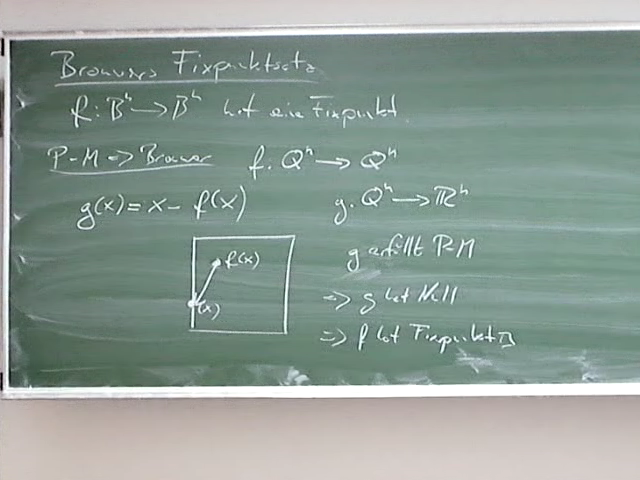 Brouwers Fixpunktsatz
f: Bⁿ → Bⁿ hat eine Fixpunkt.
P-M => Brouwer f: Qⁿ → Qⁿ
g(x) = x - f(x) g: Qⁿ → ℝⁿ
g erfüllt P-M
f(x)
(x)
=> g hat Null
=> f hat Fixpunkt □